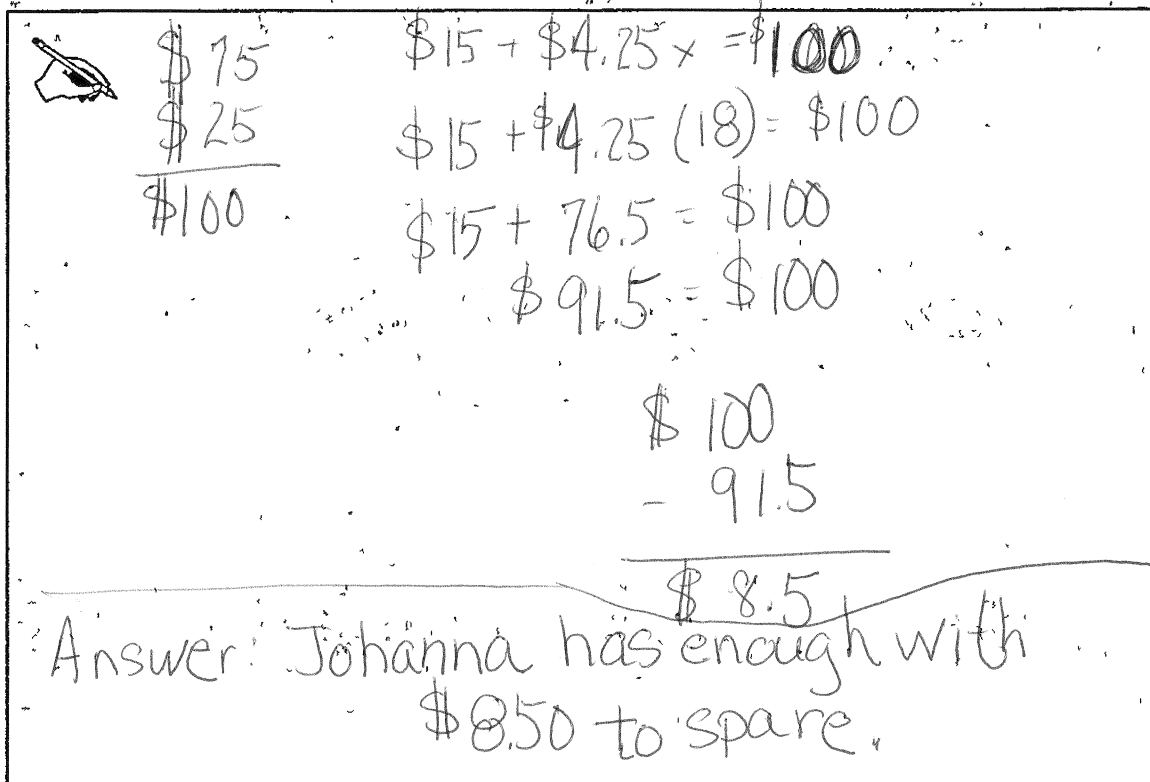 $75
$25
$100
$15 + $4.25x = $100
$15 + $4.25 (18) = $100
$15 + 76.5 = $100
$91.5 = $100
$100
- 91.5
$8.5
Answer: Johanna has enough with
$8.50 to spare.